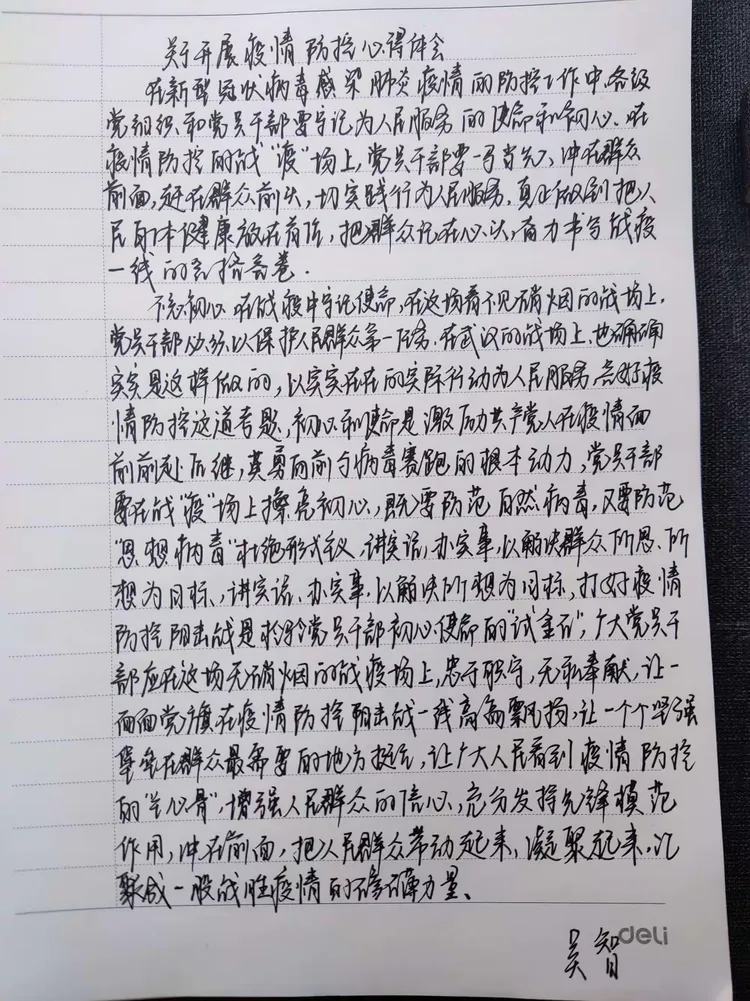 关于开展疫情防控心得体会
在新型冠状病毒感染肺炎疫情的防控工作中,各级
党组织和党员干部要牢记为人民服务的使命和初心、在
疫情防控的战“疫”场上,党员干部要一马当先、冲在群众
前面,赶在群众前头,切实践行为人民服务,真正做到把人
民身体健康放在首位,把群众记在心头,奋力书写战疫
一线的合格答卷.
不忘初心,在战疫中牢记使命,在这场看不见硝烟的战场上,
党员干部必须以保护人民群众第一任务.在武汉的战场上、也确确
实实是这样做的,以实实在在的实际行动为人民服务,答好疫
情防控这道考题,初心和使命是激励共产党人在疫情面
前前赴后继,英勇向前与病毒赛跑的根本动力,党员干部
要在战“疫”场上擦亮初心,既要防范自然病毒,又要防范
“思想病毒”杜绝形式主义,讲实话,办实事,以解决群众所思、所
想为目标,讲实话、办实事,以解决所想为目标,打好疫情
防控阻击战是检验党员干部初心使命的“试金石”,广大党员干
部应在这场无硝烟的战疫场上,忠于职守,无私奉献,让一
面面党旗在疫情防控阻击战一线高高飘扬,让一个个坚强
堡垒在群众最需要的地方挺立,让广大人民看到疫情防控
的“主心骨”,增强人民群众的信心,充分发挥先锋模范
作用,冲在前面,把人民群众带动起来、凝聚起来,汇
聚成一股战胜疫情的磅礴力量、
吴智
deli